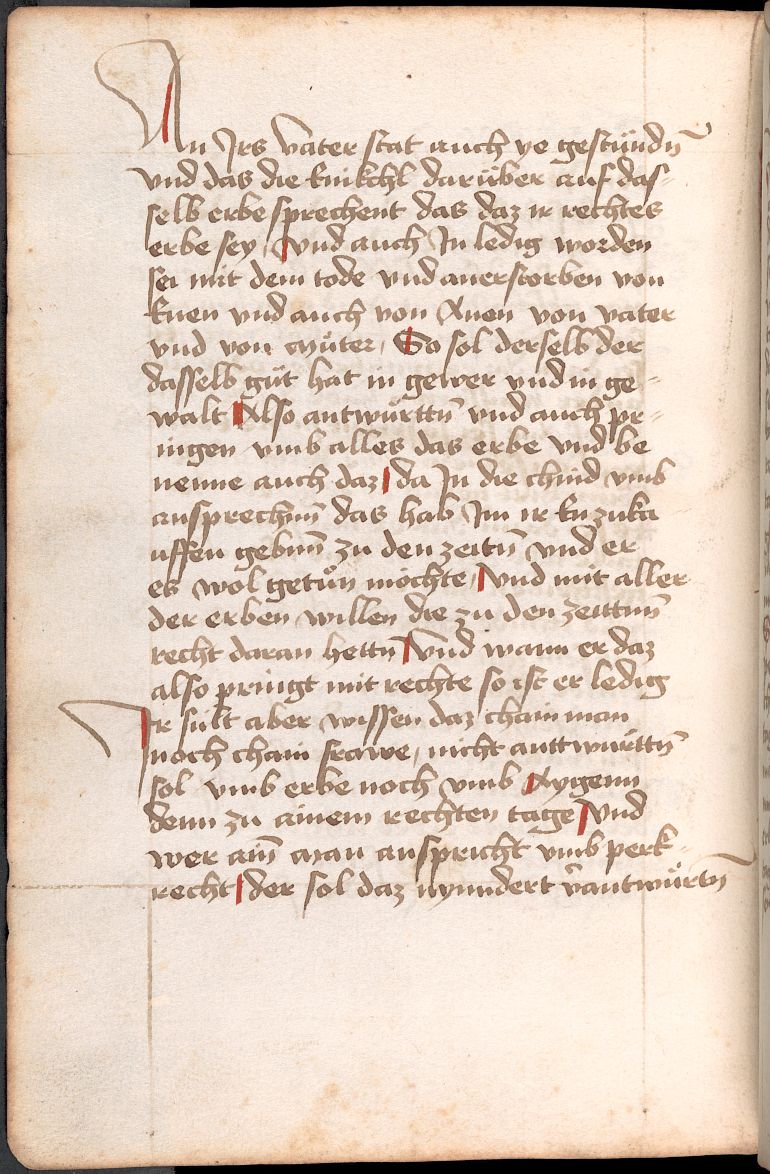 An Irs vater stat auch ye gestündn̄
vnd das die Enikchl darüber auf das=
selb erbe sprechent das daz ir rechtes
erbe sey / vnd auch In ledig worden
sei mit dem tode vnd anerstorben von
Enen vnd auch von Anen von vater
vnd von můter / So sol derselb der
dasselb gůt hat in gewer vnd in ge=
walt Also antwürttn̄ vnd auch pr=
ingen vmb alles das erbe vnd be
nenne auch daz da In die chind vmb
ansprechnn̄ das hab Im ir En zuka
uffen gebnn̄ zu den zeitn̄ vnd er
es wol getůn möchte / vnd mit aller
der erben willen die zu den zeittnn̄
recht daran hettn̄ Vnd wann er daz
also pringt mit rechte so ist er ledig
Ir sült aber wissen daz chain man
noch chain frawe / nicht anttwürttn̄
sol vmb erbe noch vmb Aygenn
denn zu ainem rechten tage Vnd
wer ain̄ man anspricht vmb perk=
recht / der sol daz nynndert v̄antwürtn̄